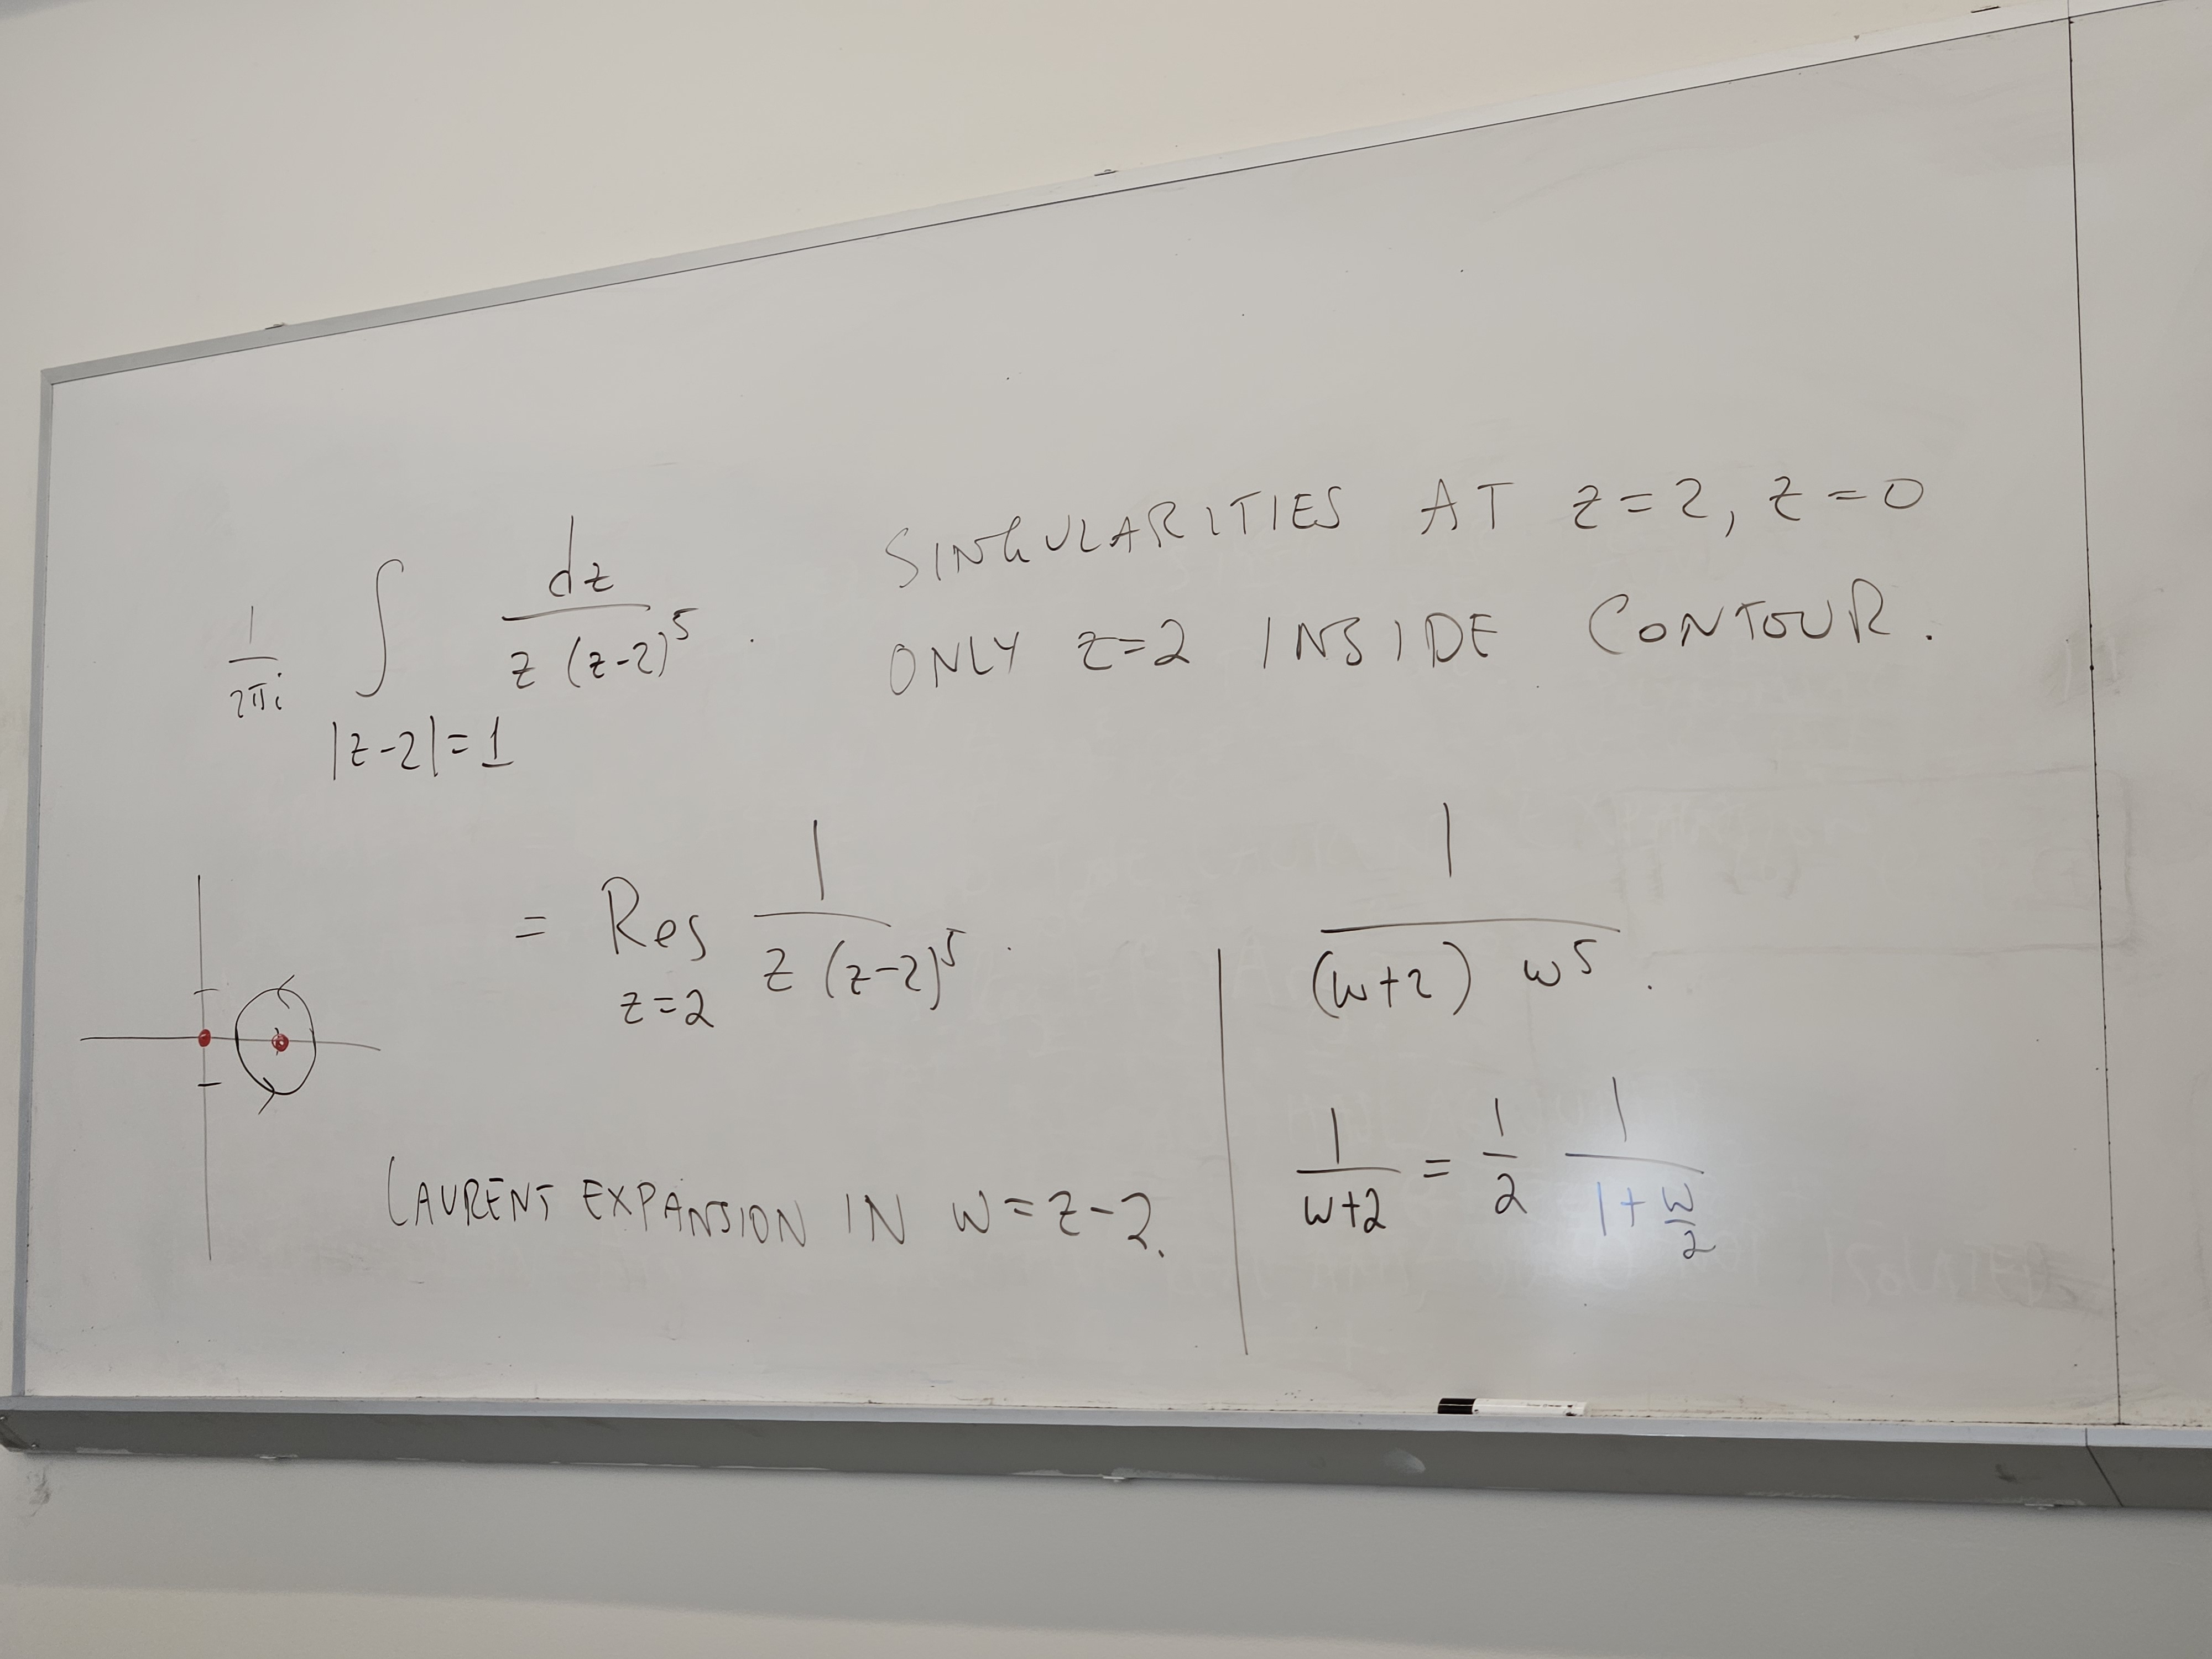 1/2πi ∫ dz / z (z-2)^5 .
|z-2|=1
SINGULARITIES AT z=2, z=0
ONLY z=2 INSIDE CONTOUR.
= Res 1 / z (z-2)^5 .
z=2
LAURENT EXPANSION IN w=z-2.
1 / (w+2) w^5 .
1/w+2 = 1/2 1/1+w/2